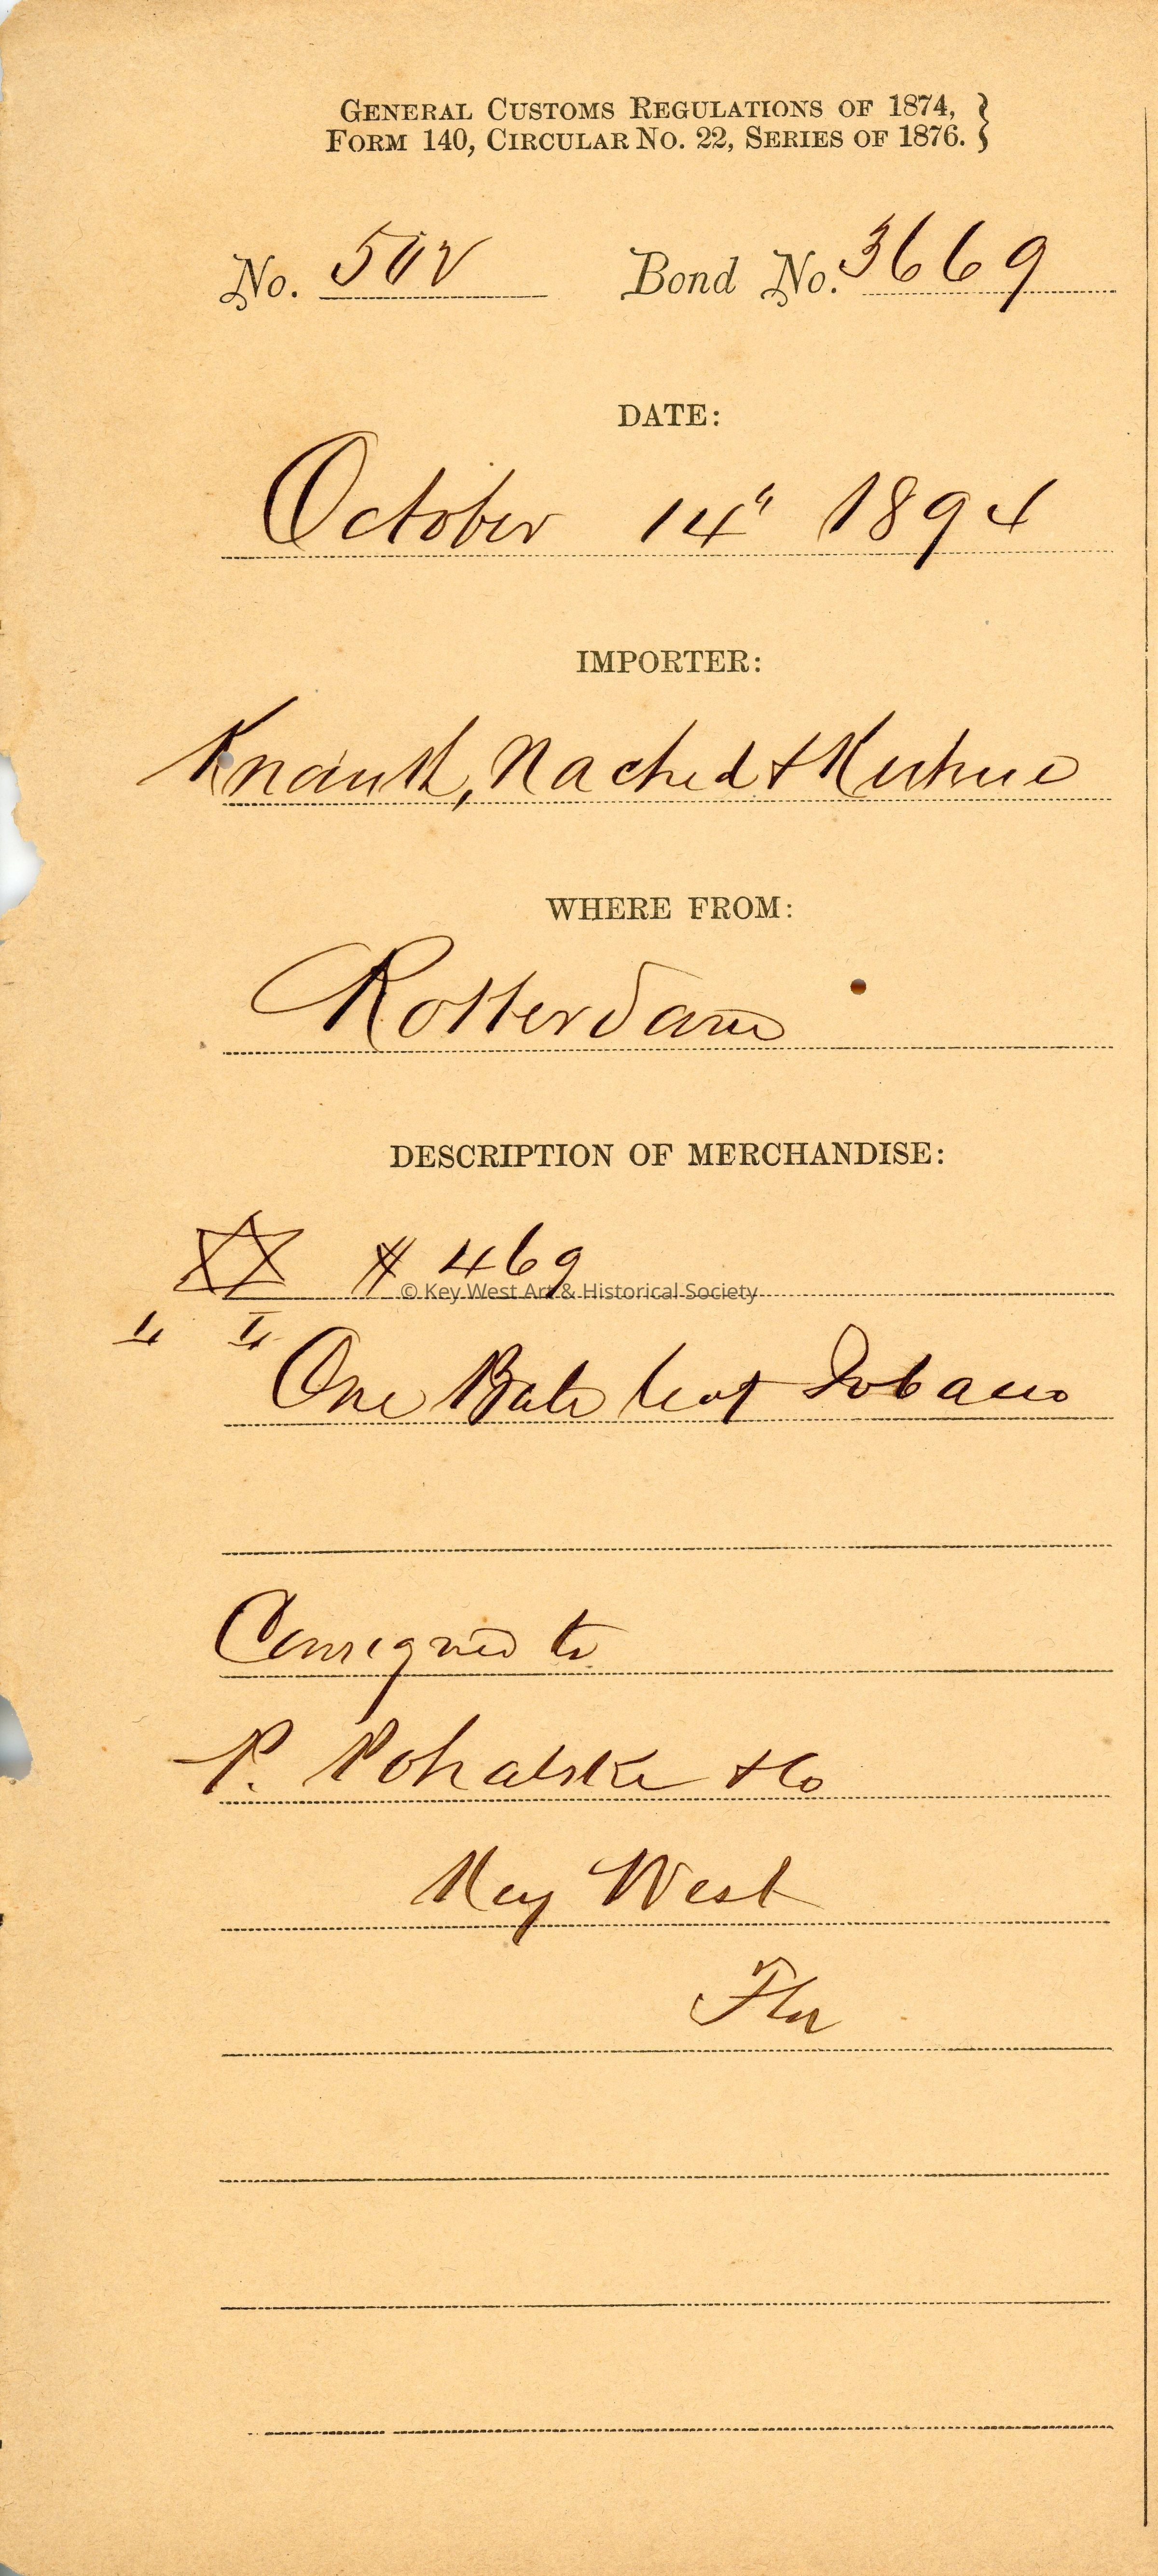 GENERAL CUSTOMS REGULATIONS OF 1874, }
FORM 140, CIRCULAR NO. 22, SERIES OF 1876. }
No. 502 Bond No. 3669
DATE:
October 14" 1894
IMPORTER:
Knauth, Nachod & Kuhne
WHERE FROM:
Rotterdam
DESCRIPTION OF MERCHANDISE:
# 469
© Key West Art & Historical Society
One Bale leaf Tobacco
Consigned to
P. Pohalski & Co
Key West
Fla